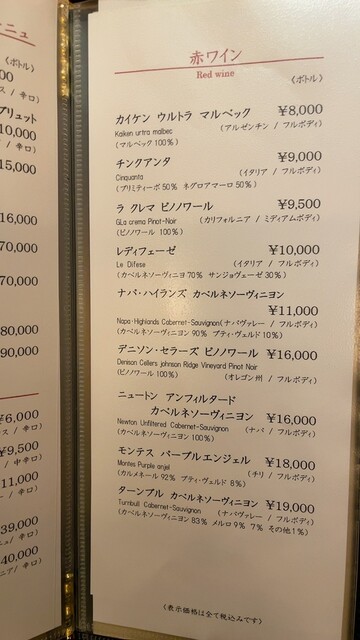 ニュ
〈ボトル〉
00
ス / 辛口)
ブリュット
10,000
/ 辛口)
15,000
16,000
70,000
70,000
80,000
90,000
¥6,000
ス / 辛口)
¥9,500
/ 中辛口)
11,000
/ 辛口)
39,000
/ 辛口)
40,000
ニア/ 辛口)
赤ワイン
Red wine
〈ボトル〉
カイケン ウルトラ マルベック ¥8,000
Kaiken urtra malbec (アルゼンチン / フルボディ)
(マルベック 100%)
チンクアンタ ¥9,000
Cinquanta (イタリア / フルボディ)
(プリミティーボ 50% ネグロアマーロ 50%)
ラ クレマ ピノノワール ¥9,500
GLa crema Pinot-Noir (カリフォルニア / ミディアムボディ)
(ピノノワール 100%)
レディフェーゼ ¥10,000
Le Difese (イタリア / フルボディ)
(カベルネソーヴィニヨ 70% サンジョヴェーゼ 30%)
ナパ・ハイランズ カベルネソーヴィニヨン
¥11,000
Napa-Highlands Cabernet-Sauvignon(ナパヴァレー / フルボディ)
(カベルネソーヴィニヨン 90% プティ・ヴェルド 10%)
デニソン・セラーズ ピノノワール ¥16,000
Denison Cellers johnson Ridge Vineyard Pinot Noir
(ピノノワール 100%) (オレゴン州 / フルボディ)
ニュートン アンフィルタード
カベルネソーヴィニヨン ¥16,000
Newton Unfiltered Cabernet-Sauvignon (ナパ / フルボディ)
(カベルネソーヴィニヨン 100%)
モンテス パープルエンジェル ¥18,000
Montes Purple anjel (チリ / フルボディ)
(カルメネール 92% プティ・ヴェルド 8%)
ターンブル カベルネソーヴィニヨン ¥19,000
Turnbull Cabernet-Sauvignon (ナパヴァレー / フルボディ)
(カベルネソーヴィニヨン 83% メルロ 9% 7% その他 1%)
〈表示価格は全て税込みです〉